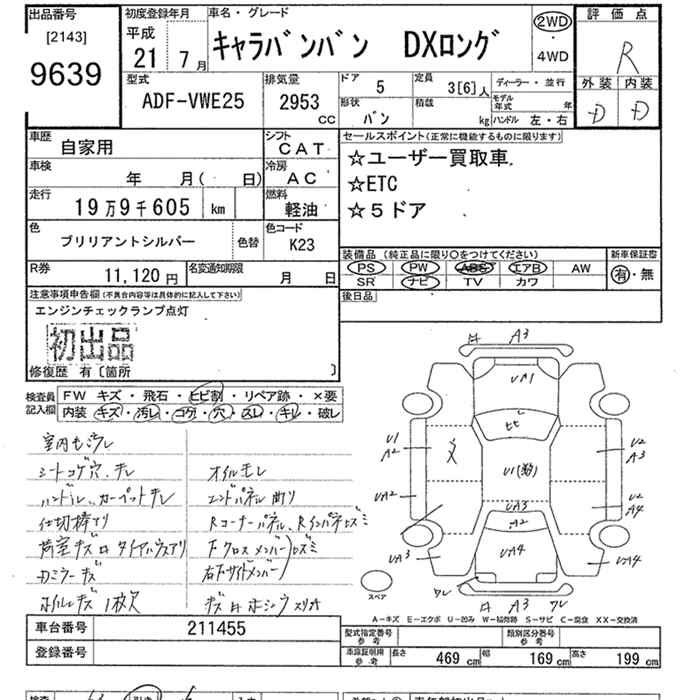 出品番号
[2143]
9639
初度登録年月
平成
21 7月
車名・グレード
キャラバンバン DXロング
2WD
・
4WD
評価点
R
外装 内装
D D
型式
ADF-VWE25
排気量
2953
CC
ドア
5
定員
3[6]人
ディーラー・並行
形状
バン
積載
kg
モデル年式 年
ハンドル 左・右
車歴
自家用
シフト
CAT
車検
年 月( 日)
冷房
AC
走行
19万9千605 km
燃料
軽油
色
ブリリアントシルバー
色替
色コード
K23
R券
11,120円
名変通知期限
月 日
セールスポイント(正常に機能するものに限ります)
☆ユーザー買取車.
☆ETC
☆5ドア
装備品 (純正品に限り○をつけてください)
PS PW ABS エアB AW
SR ナビ TV カワ
新車保証書
有・無
後日品
注意事項申告欄(不具合内容等は具体的に記入して下さい)
エンジンチェックランプ点灯
初出品
修復歴 有〔箇所 〕
検査員記入欄
FW キズ・飛石・ヒビ割・リペア跡・×要
内装・キズ・汚レ・コゲ・穴・スレ・キレ・破レ
室内ヨゴレ
シートコゲ穴、キレ
ハンドル、カーペットキレ
仕切棒アリ
荷室キズ
オイルモレ
エンドパネル曲り
Rコーナーパネル、Rインパネ
Fクロスメンバー
右Fサイドメンバー
ホイルキズ 1枚欠
A3
UA1
ヒビ
U1
A2
U2
A3
UA2
U2
A4
UA3
A2
UA3
UA4
UA4
A3
スペア
A-キズ E-エクボ U-凹み W-補修跡 S-サビ C-腐食 XX-交換済
車台番号
211455
登録番号
型式指定番号
参考
類別区分番号
参考
車庫証明用
参考
長さ 469cm 幅 169cm 高さ 199cm